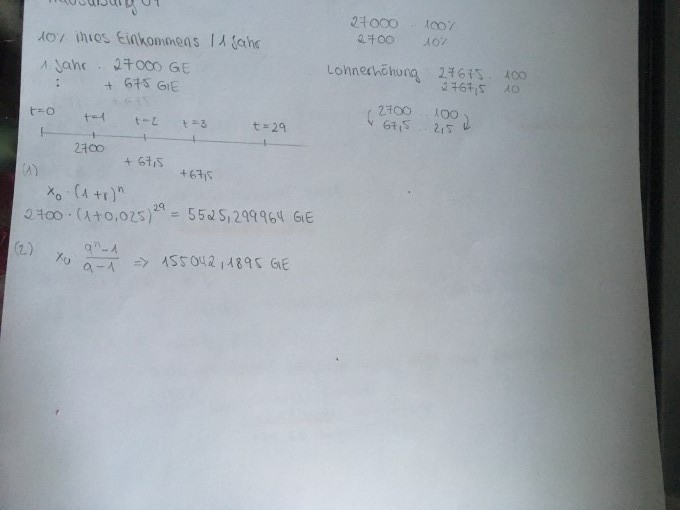 27000 100%
2700 10%
10% ihres Einkommens / 1 Jahr
1 Jahr . 27000 GE
: + 675 GE
Lohnerhöhung 27675 . 100
2767,5 10
2700 .. 100
67,5 .. 2,5
t=0 t=1 t=2 t=3 t=29
2700 + 67,5 + 67,5
(1)
x₀ · (1+r)ⁿ
2700 · (1+0,025)²⁹ = 5525,299964 GE
(2) x₀ qⁿ-1 / q-1 => 155042,1895 GE